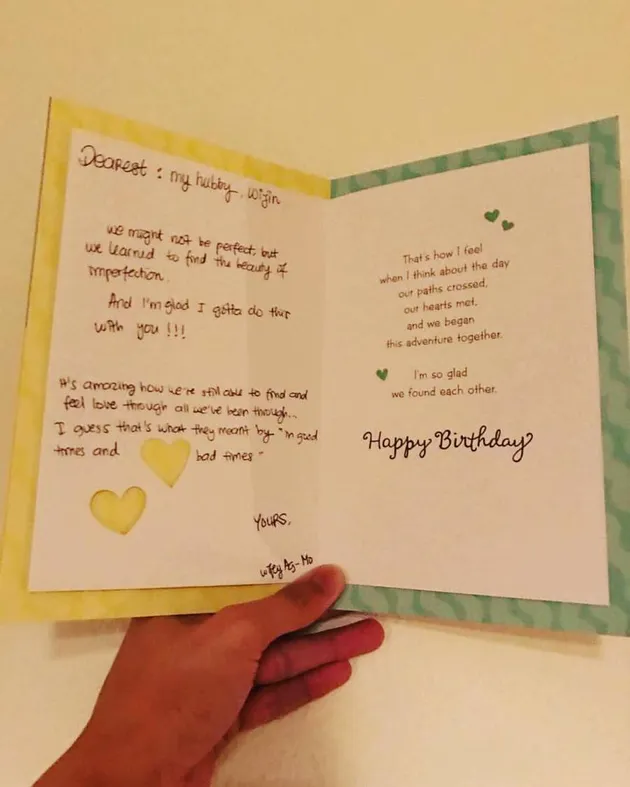 Dearest : my hubby, Wizin
we might not be perfect, but
we learned to find the beauty of
imperfection.
And I'm glad I gotta do this
with you !!!
It's amazing how we're still able to find and
feel love through all we've been through...
I guess that's what they meant by "in good
times and bad times"
YOURS,
wifey Ag-Mo
That's how I feel
when I think about the day
our paths crossed,
our hearts met,
and we began
this adventure together.
I'm so glad
we found each other.
Happy Birthday